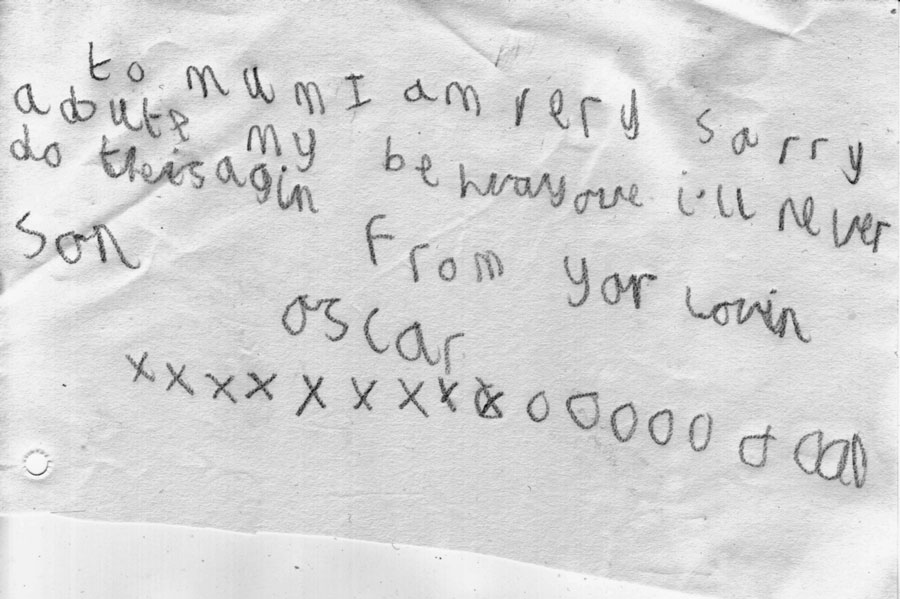 to mum I am very sarry
adoute my behavayoure i'll never
do theis agin
From yor lovin
son
oscar
xxxx x x x x x o o o o o o oooo